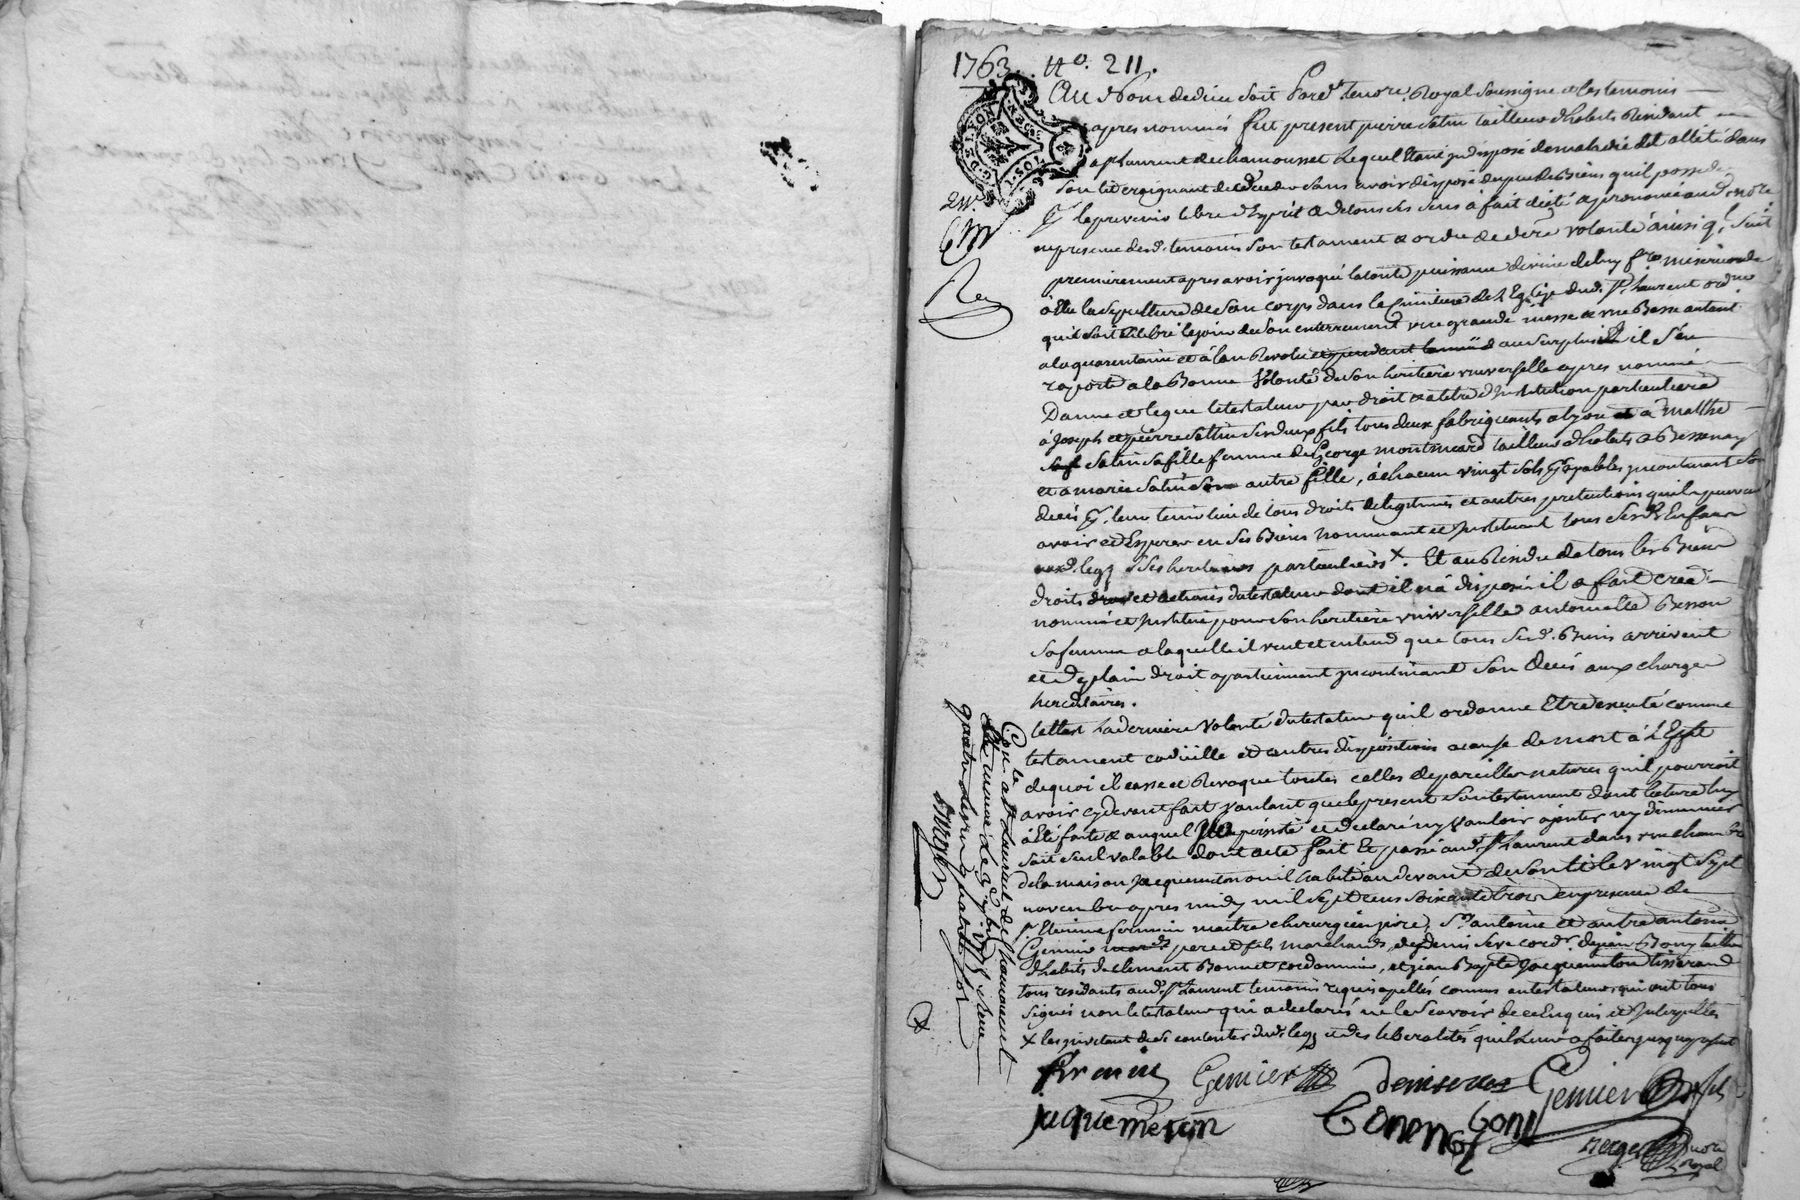 1763. No. 211.
Au Nom de dieu soit Pard.t le no.re Royal soussigné et les temoins
apres nommés fut present pierre satin tailleur d'habits Residant
a st Laurent de chamousset Lequel Etant indisposé de maladie et allité dans
son lit craignant de deceder sans avoir disposé du peu de Biens qu'il possede
libre d'Esprit et de tous ses sens a fait dicté et prononcé aud. no.re
en presence desd. temoins son testament et ordre de dern.re volonté ainsi q.l suit
premierement apres avoir invoqué la toute puissance divine de luy f.re misericorde
a Elu la sepulture de son corps dans le Cimitiere de l'Eglise dud. st Laurent ord.ne
qu'il soit Celebré le jour de son enterrement une grande messe et une Basse autant
a la quarantaine et à l'an Revolu et pendant au surplus il s'en
raporte a la Bonne Volonté de son heritiere universelle apres nommée
Donne et legue le testateur par droit et a titre d'institution particuliere
à Joseph et pierre satin ses deux fils tous deux fabriquants a lyon et a Matthe
satin sa fille femme de George montmeard tailleur d'habits a Bessenay
et a marie satin son autre fille, à chacun vingt sols payables incontinent son
decés p.r leur tenir lieu de tous droits de legitimes et autres pretentions qu'ils peuvent
avoir et Esperer en ses Biens nommant et instituant tous sesd. Enfans
aud. legs ses heritiers particuliers x. Et au Residu de tous les Biens
droits et actions du testateur dont il n'a disposé il a fait creé
nommé et institué pour son heritiere universelle antoinette Besson
sa femme a laquelle il veut et entend que tous sesd. Biens arrivent
et de plain droit apartiennent incontinent son decés aux charges
hereditaires.
Cest la derniere Volonté du testateur qu'il ordonne Etre executé comme
testament codicille et autres dispositions a cause de mort à l'Effet
de quoi il casse et Revoque toutes celles de pareilles natures qu'il pourroit
avoir cy devant fait voulant que le present son testament dont lecture luy
à Eté faite et auquel il a persisté et declaré n'y vouloir ajouter ny diminuer
soit seul valable dont acte fait Et passé aud. st Laurent dans une chambre
de la maison Jacquemeton ou il habite au devant de son lit le vingt sept
novembre apres midy mil sept cens soixante trois en presence de
s.r Etienne fermin maitre chirurgien juré, S.rs antoine et autre antoine
Gemier pere et fils marchands, de denis seve cord.r de jean Bony tailleur
d'habits de clement Bonnet cordonnier, et jean Bapte Jacquemeton tisserand
tous residants aud. st Laurent temoins requis apellés connus au testateur qui ont tous
signés non le testateur qui a declarés ne le scavoir de ce Enquis et interpellés
x les invitant de se contenter dud. legs et des liberalités qu'il leur a faites jusqu'a present
Gemier denis seve Gemier fils
jaquemeton Bonnet boni
no.re
Royal
Con.le a st Laurent de Chamousset